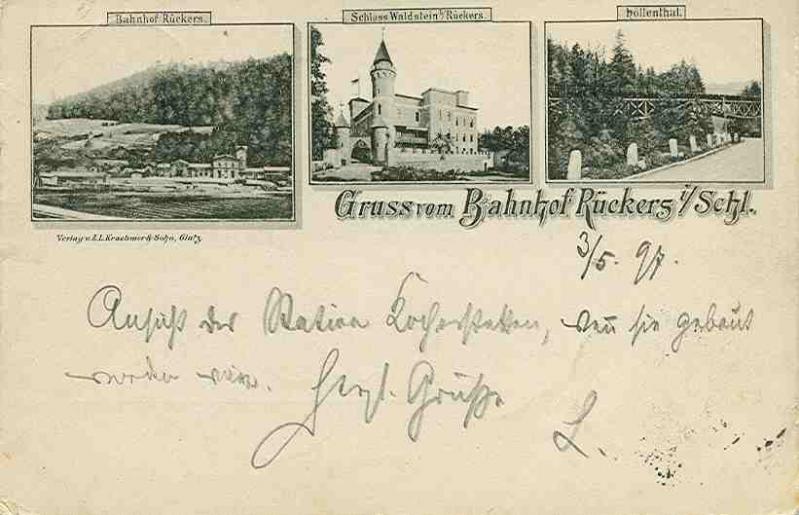 Bahnhof Rückers.
Schloss Waldstein b/Rückers.
Höllenthal.
Gruss vom Bahnhof Rückers i/Schl.
Verlag v. E.L. Kraehmer & Sohn, Glatz
3/5. 97.
Ansicht der Station Kocherstetten, wenn sie gebaut
werden wird. Herzl. Grüße
L.